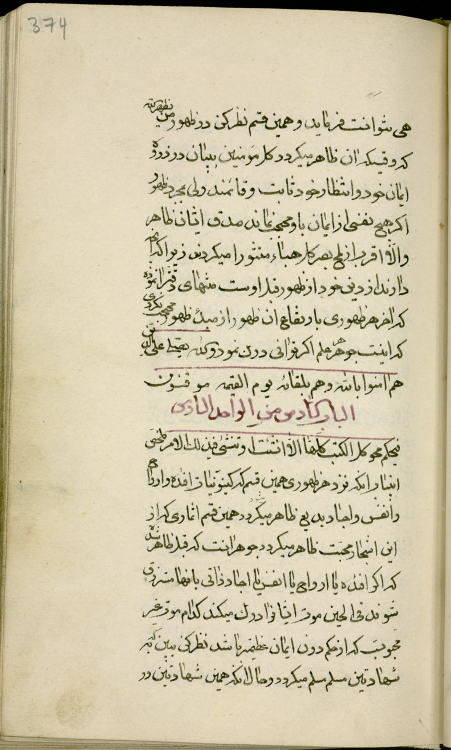 374
همی شوانست فرماید و همین قسم نظر کن در ظهور من یظهره الله
که وقتیکه ان ظاهر میگردد کل مومنین ببیان در ذروه
ایمان خود و انتظار خود ثابت و قائمند ولی بمجرد ظهور
اگر هیچ نفسی از ایمان باو محتجب نماند صدق ایشان ظاهر
والا اقرب از لمح بصر کل هباء منثورا میگردند زیرا که انچه
دارند از دین خود از ظهور قبل اوست منتهای دقترا نموده
که اخر هر ظهوری بارتفاع ان ظهور از مبدء ظهور محتجب نگردی
که اینست جوهر هر علم اگر توانی درک نمود و کل
هم امنوا بالله و هم بلقائه یوم القیمه موقنون
الباب السادس من الواحد الثالث
فیحکم محو کل الکتب کلها الا ما انشئت او تنشئ فی ذلک الامر ملخص
اینباب انکه نزد هر ظهوری همین قسم که کینونیات افئده و ارواح
و انفس و اجساد بدیع ظاهر میگردد همین قسم اثماری که از
این اشجار محبت ظاهر میگردد جوهر انست که قبل ظاهر شده
که اگر افئده یا ارواح یا انفس یا اجساد ذاتی بانها مشرق
شوند فی الحین موت ایشانرا درک میکند کدام موت غیر
محجوبیت که از حکم دون ایمان عظیمتر باشد نظر کن ببین که به
شهادتین مسلم مسلم میگردد و حال انکه همین شهادتین در